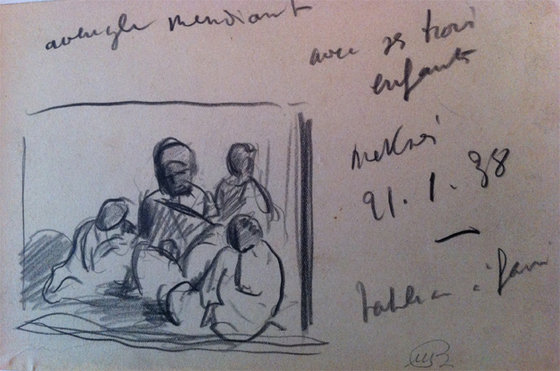 aveugle mendiant
avec ses trois
enfants
Meknès
21.1.38
tableau à faire